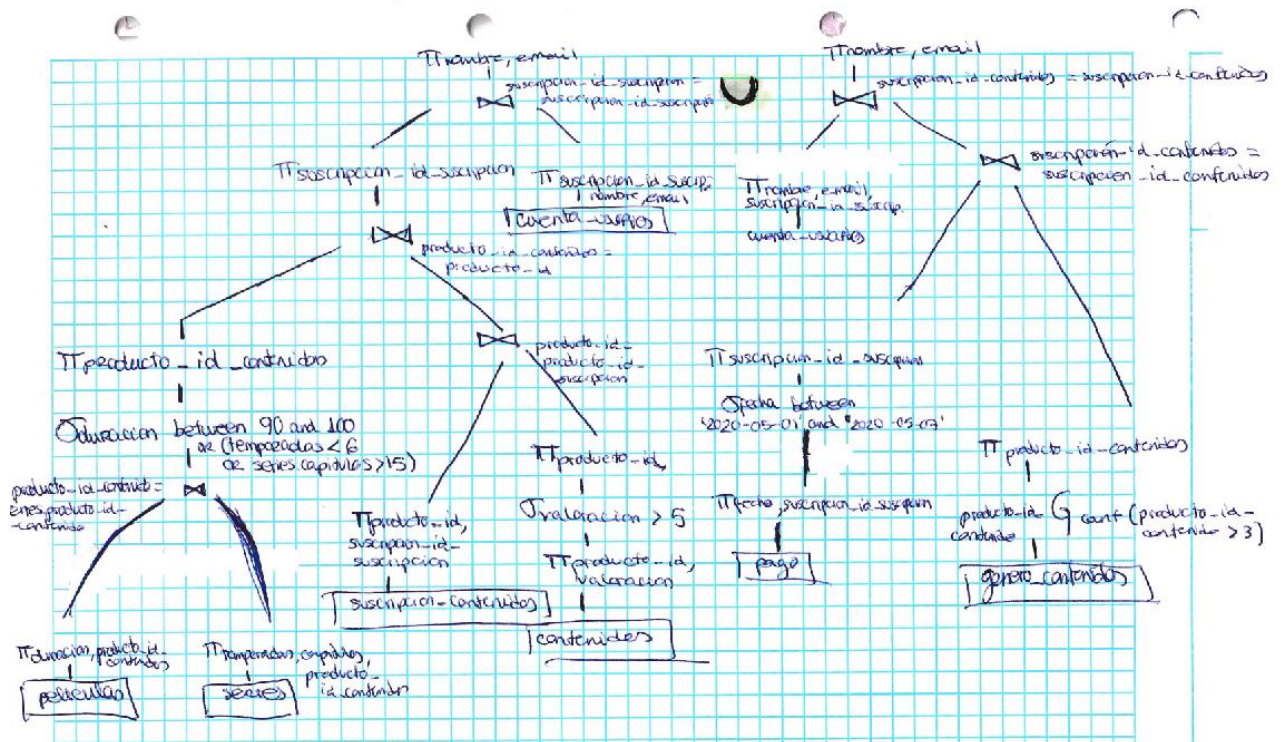 π nombre, email
suscripcion_id_suscripcion =
suscripcion_id_suscripció
π suscripcion_id_suscripcion
π suscripcion_id_suscrip,
nombre, email
cuenta_usuarios
producto_id_contenidos =
producto_id
π producto_id_contenidos
σ duracion between 90 and 100
or (temporadas < 6
or series.capitulos > 15)
producto_id_contenido =
series.producto_id_
contenido
π duracion, producto_id_
contenidos
peliculas
π temporadas, capitulos,
producto_
id_contenidos
series
producto_id_
producto_id_
suscripcion
π producto_id,
suscripcion_id_
suscripcion
suscripcion_contenidos
π producto_id,
σ valoracion > 5
π producto_id,
valoracion
contenidos
π nombre, email
suscripcion_id_contenidos = suscripcion_id_contenidos
suscripción_id_contenidos =
suscripcion_id_contenidos
π nombre, email,
suscripcion_id_suscrip.
cuenta_usuarios
π suscripcion_id_suscripcion
σ fecha between
'2020-05-01' and '2020-05-07'
π fecha, suscripcion_id_suscripcion
pago
π producto_id_contenidos
producto_id_ G count (producto_id_
contenido contenido > 3)
genero_contenidos